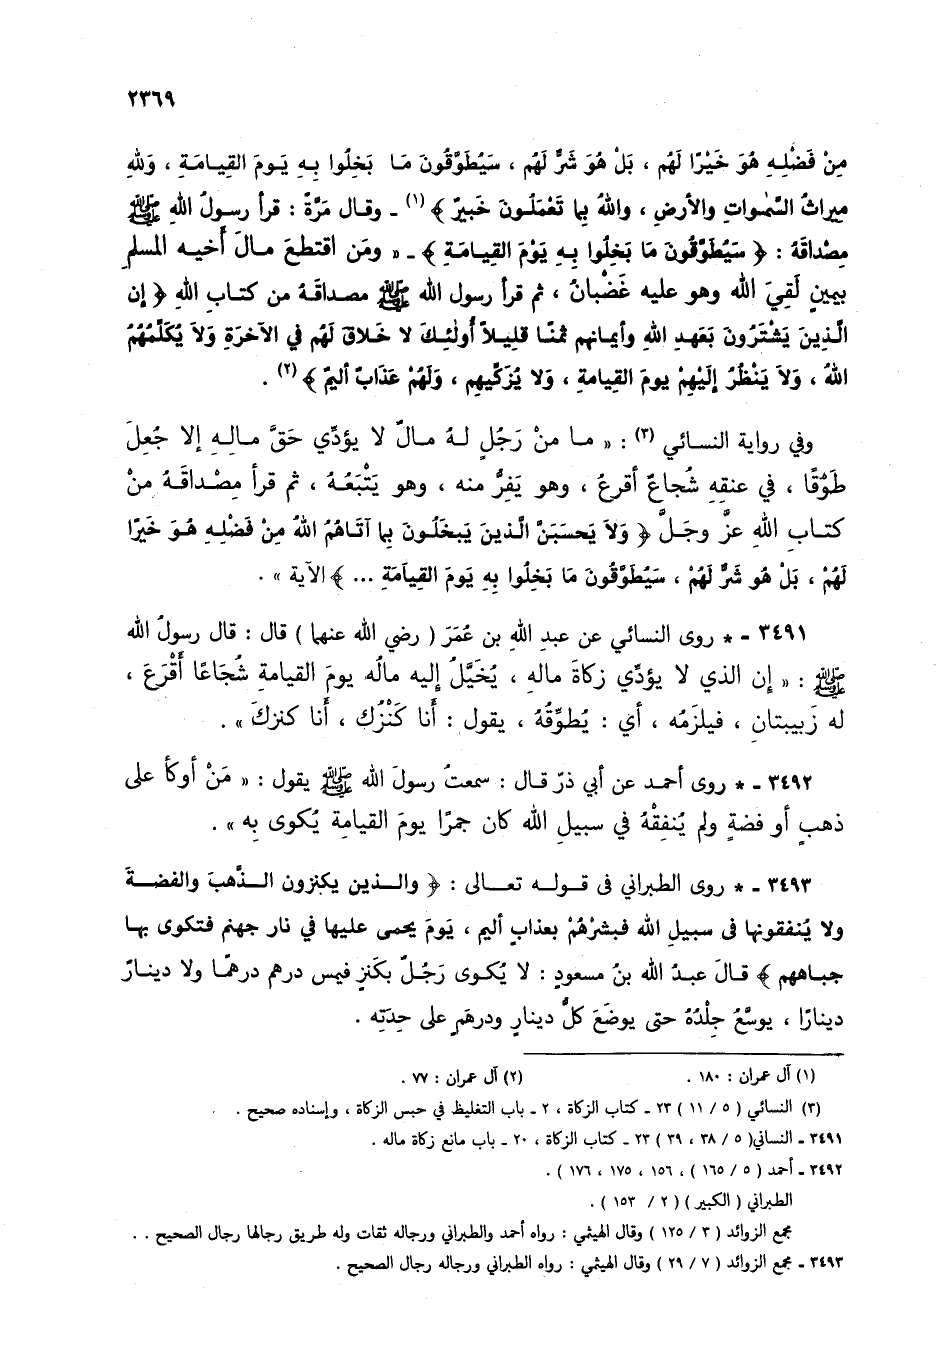 ٢٣٦٩
مِنْ فَضْلِهِ هُوَ خَيْرًا لَهُم ، بَلْ هُوَ شَرٌّ لَهُم ، سَيُطَوَّقُونَ مَا بَخِلُوا بِهِ يَومَ القِيَامَةِ ، وَللهِ
مِيراثُ السَّمٰواتِ والأرضِ ، واللهُ بِما تَعْمَلُونَ خَبيرٌ ﴾ (١) ـ وقال مَرَّةً : قرأ رسولُ اللهِ ﷺ
مصْداقَهُ : ﴿ سَيُطَوَّقُونَ مَا بَخِلُوا بِهِ يَوْمَ القِيَامَةِ ﴾ ـ « ومَن اقتطعَ مالَ أخيه المسلمِ
بيمينٍ لَقِيَ اللهَ وهو عليه غَضْبانُ ، ثم قرأ رسول الله ﷺ مصداقَهُ من كتابِ اللهِ ﴿ إن
الَّذِينَ يَشْتَرُونَ بَعَهدِ اللهِ وأيمانِهم ثمنًا قليلاً أُولٰئِكَ لا خَلاقَ لَهُم في الآخرَةِ وَلاَ يُكَلِّمُهُمُ
اللهُ ، وَلاَ يَنْظُرُ إلَيْهِمْ يومَ القيامةِ ، وَلا يُزَكِّيهِم ، وَلَهُمْ عَذَابٌ أليمٌ ﴾ (٢) .
وفي رواية النسائي (٣) : « ما منْ رَجُلٍ لهُ مالٌ لا يؤدِّي حَقَّ مالِهِ إلا جُعِلَ
طَوْقًا ، في عنقهِ شُجاعٌ أقرعُ ، وهو يَفِرُّ منه ، وهو يَتْبَعُهُ ، ثم قرأ مِصْداقَهُ منْ
كتابِ اللهِ عزَّ وجَلَّ ﴿ وَلاَ يَحسَبَنَّ الَّذينَ يَبخَلُونَ بِما آتَاهُمُ اللهُ مِنْ فَضْلِهِ هُوَ خَيرًا
لَهُمْ ، بَلْ هُوَ شَرٌّ لَهُمْ ، سَيُطَوَّقُونَ مَا بَخِلُوا بِهِ يَومَ القِيَامَةِ ... ﴾ الآية » .
٣٤٩١ ـ * روى النسائي عن عبدِ اللهِ بن عُمَرَ ( رضي الله عنهما ) قال : قال رسولُ الله
ﷺ : « إن الذي لا يؤدِّي زكاةَ ماله ، يُخَيَّلُ إليه مالُه يومَ القيامةِ شُجاعًا أَقْرَعَ ،
له زَبيبتان ، فيلزَمُه ، أي : يُطوِّقُهُ ، يقول : أنا كَنْزُك ، أنا كنزكَ » .
٣٤٩٢ ـ * روى أحمد عن أبي ذرّ قال : سمعتُ رسولَ الله ﷺ يقول : « مَنْ أوكأ على
ذهبٍ أو فضةٍ ولم يُنفِقْهُ في سبيلِ الله كان جمرًا يومَ القيامة يُكوى به » .
٣٤٩٣ ـ * روى الطبراني فى قوله تعالى : ﴿ والذين يكنزون الذَّهبَ والفضةَ
ولا يُنفقونها فى سبيلِ الله فبشرْهُمْ بعذابٍ أليم ، يَومَ يحمى عليها في نار جهنم فتكوى بها
جباههم ﴾ قالَ عبدُ الله بنُ مسعودٍ : لا يُكوى رَجُلٌ بكَنزٍ فيمس درهم درهمًا ولا دينارٌ
دينارًا ، يوسَّعُ جِلْدُهُ حتى يوضَعَ كلُّ دينارٍ ودرهَمٍ على حِدَتِه .
(١) آل عمران : ١٨٠ . (٢) آل عمران : ٧٧ .
(٣) النسائي ( ٥ / ١١ ) ٢٣ ـ كتاب الزكاة ، ٢ ـ باب التغليظ في حبس الزكاة ، وإسناده صحيح .
٣٤٩١ ـ النسائي( ٥ / ٣٨ ، ٣٩ ) ٢٣ ـ كتاب الزكاة ، ٢٠ ـ باب مانع زكاة ماله .
٣٤٩٢ ـ أحمد ( ٥ / ١٦٥ ) ، ١٥٦ ، ١٧٥ ، ١٧٦ ) .
الطبراني ( الكبير ) ( ٢ / ١٥٣ ) .
مجمع الزوائد ( ٣ / ١٢٥ ) وقال الهيثمي : رواه أحمد والطبراني ورجاله ثقات وله طريق رجالها رجال الصحيح . .
٣٤٩٣ ـ مجمع الزوائد ( ٧ / ٢٩ ) وقال الهيثمي : رواه الطبراني ورجاله رجال الصحيح .